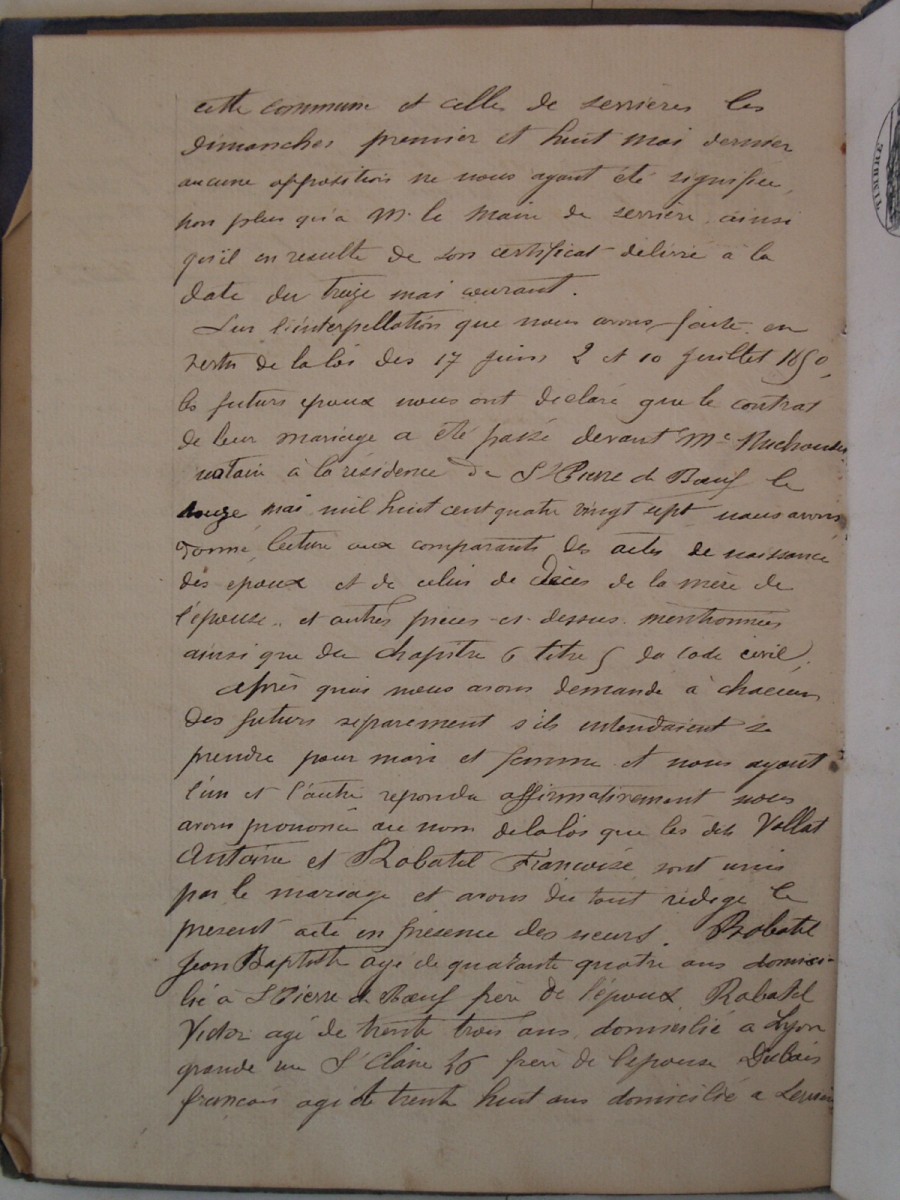 cette commune et celle de serrières les
dimanches premier et huit mai dernier
aucune opposition ne nous ayant été signifiée,
non plus qu'a M. le Maire de serrière, ainsi
qu'il en resulte de son certificat délivré à la
date du treize mai courant.
Sur l'interpellation que nous avons faite en
vertu de la loi des 17 juin 2 et 10 juillet 1850,
les futurs epoux nous ont déclaré que le contrat
de leur mariage a été passé devant Me
notaire à la résidence de St Pierre de Bœuf le
mai mil huit cent quatre vingt sept nous avons
donné lecture aux comparants des actes de naissance
des epoux et de celui de décès de la mère de
l'épouse.. et autres pieces ci-dessus mentionnées
ainsi que du chapitre 6 titre 5 du code civil,
après quoi nous avons demandé à chacun
des futurs separement s'ils entendaient se
prendre pour mari et femme et nous ayant
l'un et l'autre repondu affirmativement nous
avons prononcé au nom de la loi que les dits Vallat
Antoine et Robatel Francoise sont unis
par le mariage et avons du tout rédigé le
present acte en présence des sieurs. Robatel
Jean Baptiste âgé de quarante quatre ans domici-
lié à St Pierre de Bœuf frère de l'époux Robatel
Victor agé de trente trois ans, domicilié a Lyon
grande rue St Claire frère de l'epouse Dubois
françois agé de trente huit ans domicilié a
TIMBRE